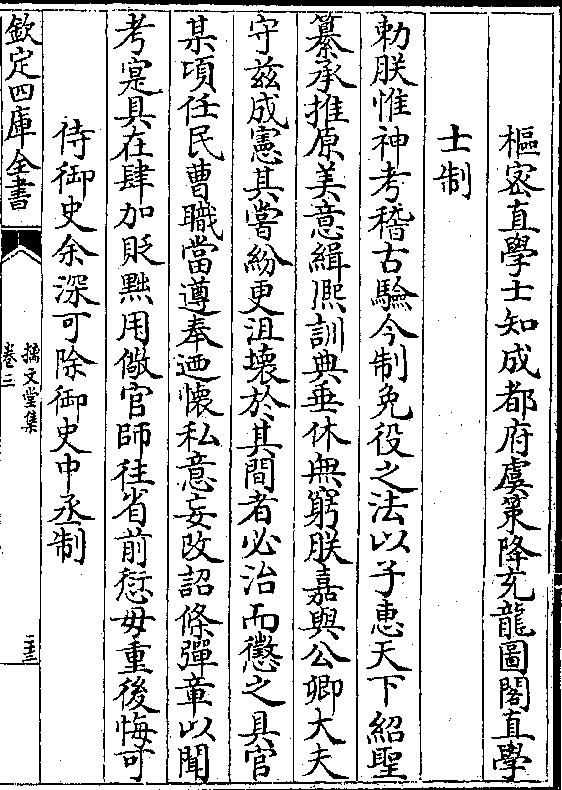 樞密直學士知成都府虞策降充龍圖閣直學
士制
勅朕惟神考稽古驗今制免役之法以子惠天下紹聖
纂承推原美意緝熈訓典垂休無窮朕嘉與公卿大夫
守兹成憲其嘗紛更沮壞於其間者必治而懲之具官
某頃任民曹職當遵奉廼懷私意妄改詔條彈章以聞
考寔具在肆加貶黜用儆官師往省前愆毋重後悔可
侍御史余深可除御史中丞制
欽定四庫全書
摛文堂集
卷三
二十三